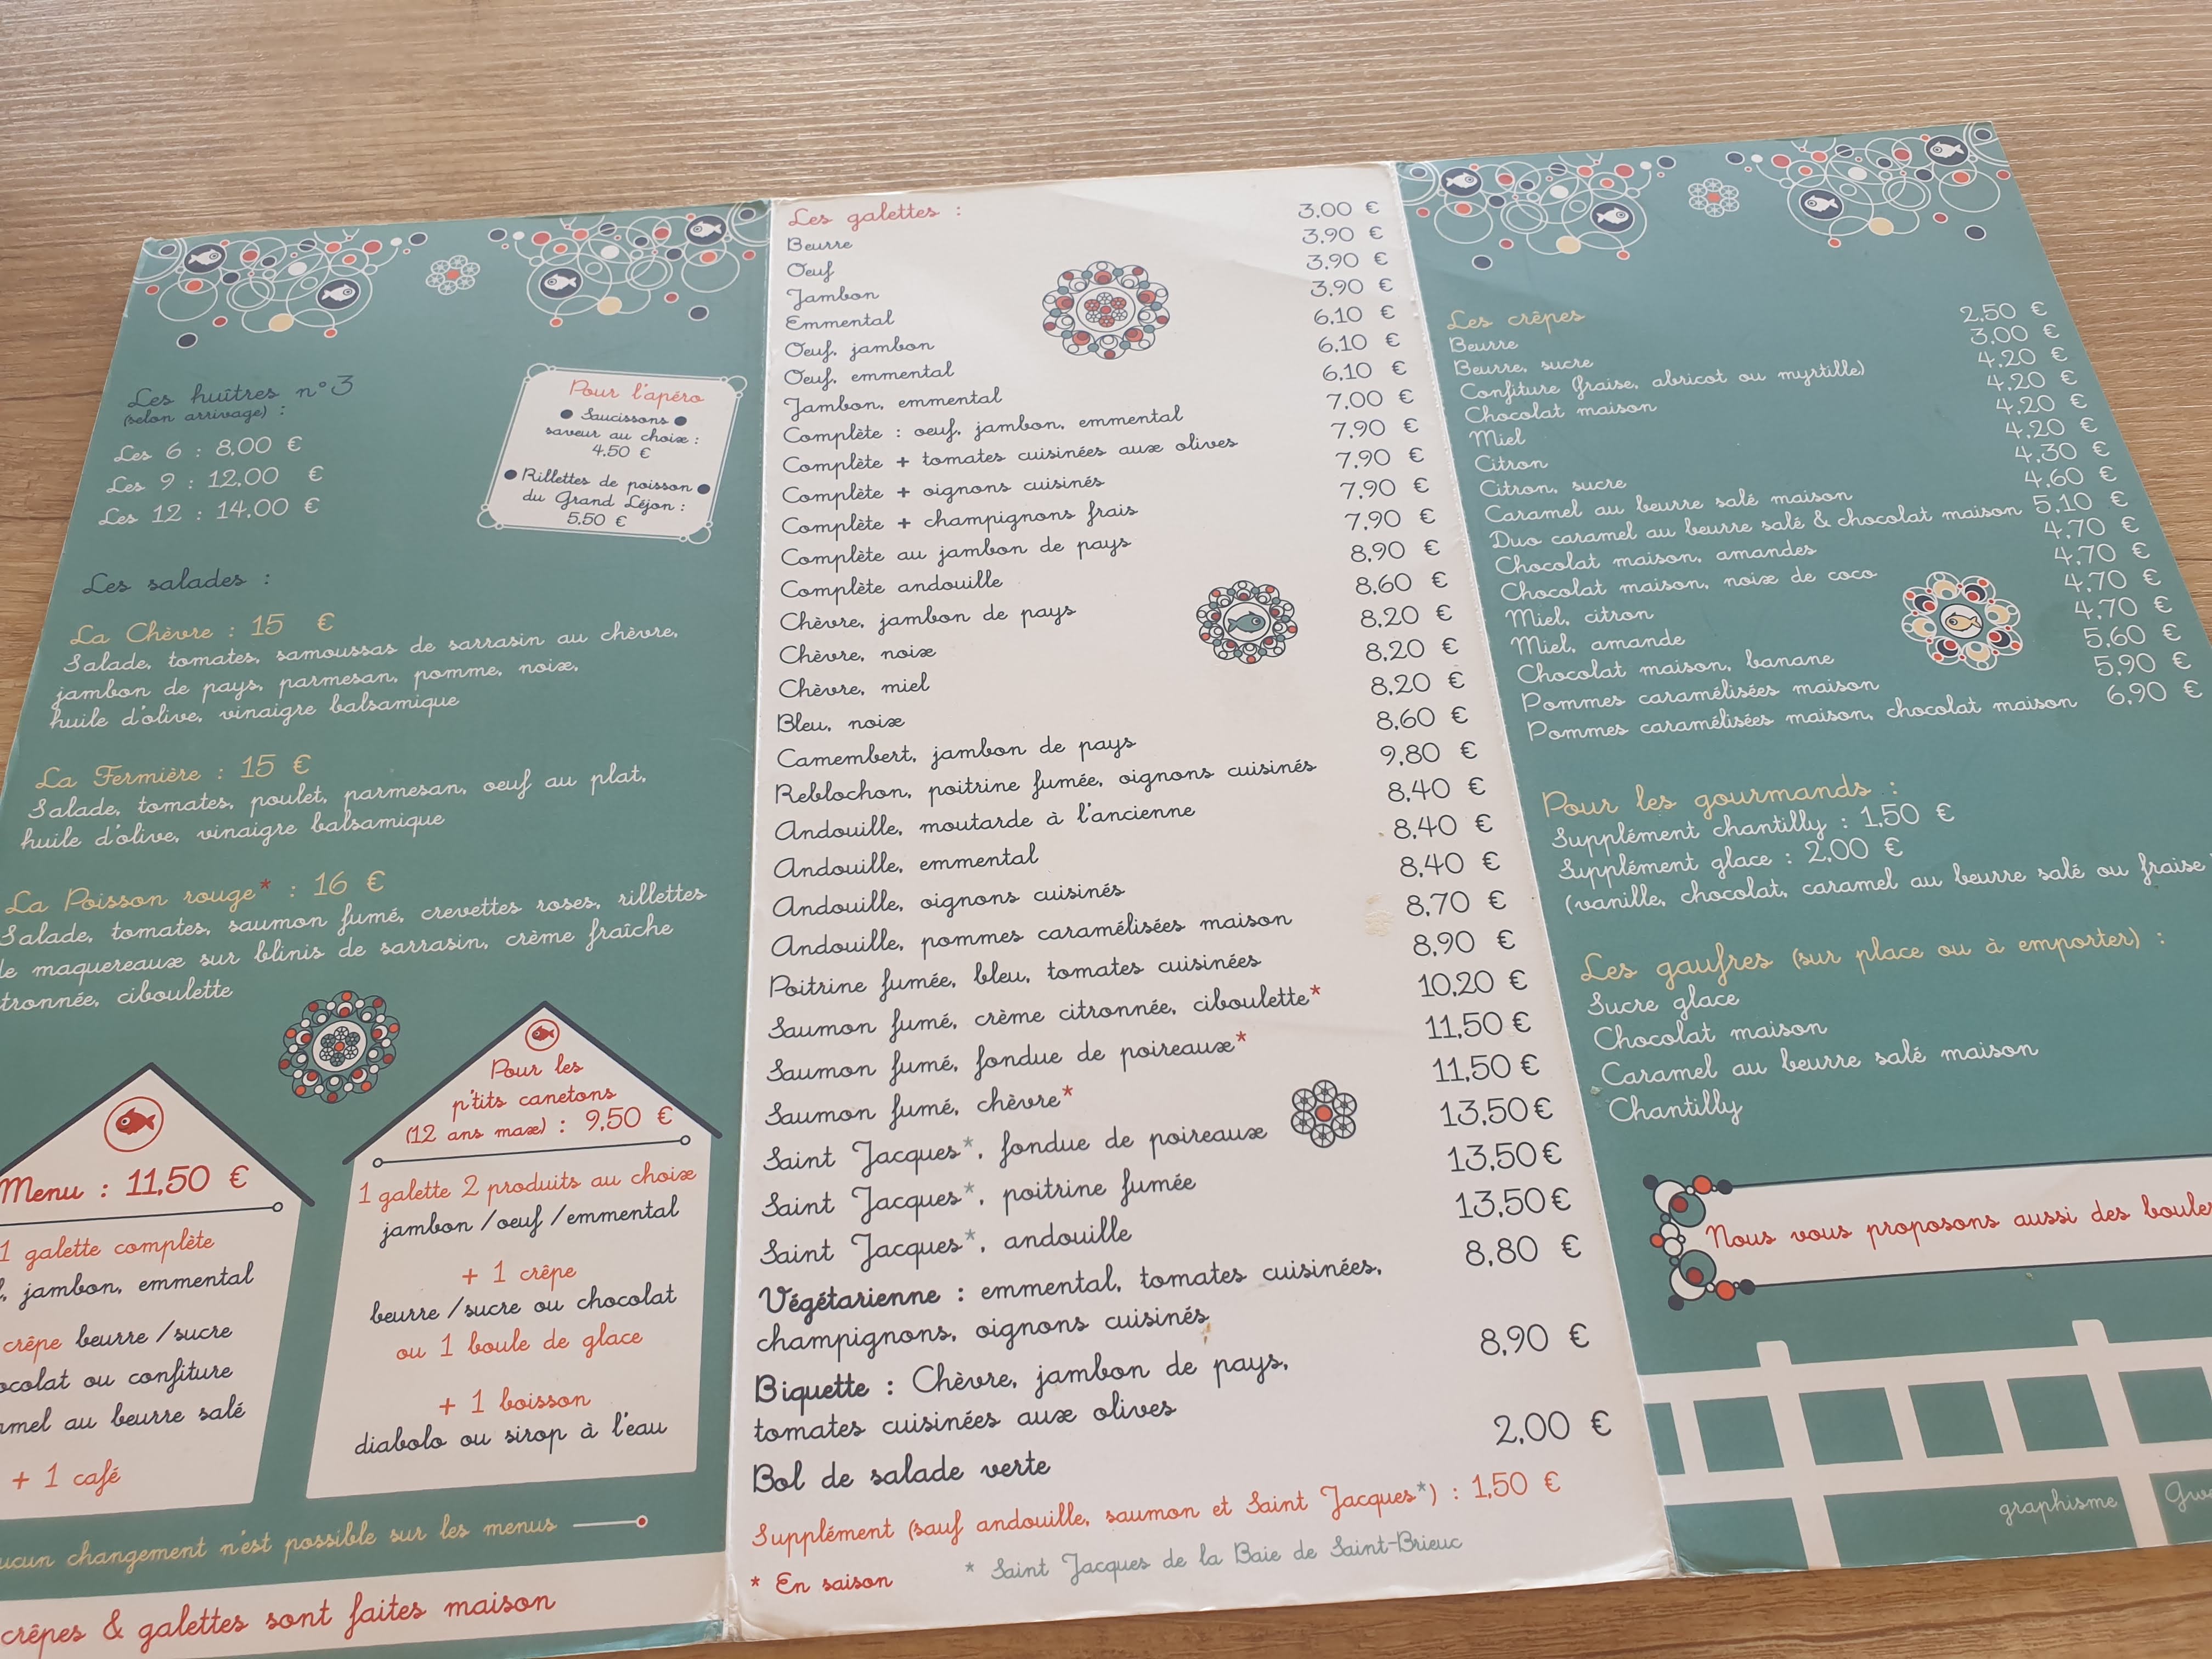 Les huîtres n°3
(selon arrivage) :
Les 6 : 8,00 €
Les 9 : 12,00 €
Les 12 : 14,00 €
Pour l'apéro
Saucissons
saveur au choix :
4,50 €
Rillettes de poisson
du Grand Léjon :
5,50 €
Les salades :
La Chèvre : 15 €
Salade, tomates, samoussas de sarrasin au chèvre,
jambon de pays, parmesan, pomme, noix,
huile d'olive, vinaigre balsamique
La Fermière : 15 €
Salade, tomates, poulet, parmesan, oeuf au plat,
huile d'olive, vinaigre balsamique
La Poisson rouge* : 16 €
Salade, tomates, saumon fumé, crevettes roses, rillettes
de maquereaux sur blinis de sarrasin, crème fraîche
citronnée, ciboulette
Menu : 11,50 €
1 galette complète
jambon, emmental
crêpe beurre /sucre
chocolat ou confiture
caramel au beurre salé
+ 1 café
Pour les
p'tits canetons
(12 ans max) : 9,50 €
1 galette 2 produits au choix
jambon /oeuf /emmental
+ 1 crêpe
beurre /sucre ou chocolat
ou 1 boule de glace
+ 1 boisson
diabolo ou sirop à l'eau
Aucun changement n'est possible sur les menus
crêpes & galettes sont faites maison
Les galettes :
Beurre 3,00 €
Oeuf 3,90 €
Jambon 3,90 €
Emmental 3,90 €
Oeuf, jambon 6,10 €
Oeuf, emmental 6,10 €
Jambon, emmental 6,10 €
Complète : oeuf, jambon, emmental 7,00 €
Complète + tomates cuisinées aux olives 7,90 €
Complète + oignons cuisinés 7,90 €
Complète + champignons frais 7,90 €
Complète au jambon de pays 7,90 €
Complète andouille 8,90 €
Chèvre, jambon de pays 8,60 €
Chèvre, noix 8,20 €
Chèvre, miel 8,20 €
Bleu, noix 8,20 €
Camembert, jambon de pays 8,60 €
Reblochon, poitrine fumée, oignons cuisinés 9,80 €
Andouille, moutarde à l'ancienne 8,40 €
Andouille, emmental 8,40 €
Andouille, oignons cuisinés 8,40 €
Andouille, pommes caramélisées maison 8,70 €
Poitrine fumée, bleu, tomates cuisinées 8,90 €
Saumon fumé, crème citronnée, ciboulette* 10,20 €
Saumon fumé, fondue de poireaux* 11,50 €
Saumon fumé, chèvre* 11,50 €
Saint Jacques*, fondue de poireaux 13,50 €
Saint Jacques*, poitrine fumée 13,50 €
Saint Jacques*, andouille 13,50 €
Végétarienne : emmental, tomates cuisinées, 8,80 €
champignons, oignons cuisinés
Biquette : Chèvre, jambon de pays, 8,90 €
tomates cuisinées aux olives
Bol de salade verte 2,00 €
Supplément (sauf andouille, saumon et Saint Jacques*) : 1,50 €
* En saison * Saint Jacques de la Baie de Saint-Brieuc
Les crêpes
Beurre 2,50 €
Beurre, sucre 3,00 €
Confiture (fraise, abricot ou myrtille) 4,20 €
Chocolat maison 4,20 €
Miel 4,20 €
Citron 4,20 €
Citron, sucre 4,30 €
Caramel au beurre salé maison 4,60 €
Duo caramel au beurre salé & chocolat maison 5,10 €
Chocolat maison, amandes 4,70 €
Chocolat maison, noix de coco 4,70 €
Miel, citron 4,70 €
Miel, amande 4,70 €
Chocolat maison, banane 5,60 €
Pommes caramélisées maison 5,90 €
Pommes caramélisées maison, chocolat maison 6,90 €
Pour les gourmands :
Supplément chantilly : 1,50 €
Supplément glace : 2,00 €
(vanille, chocolat, caramel au beurre salé ou fraise
Les gaufres (sur place ou à emporter) :
Sucre glace
Chocolat maison
Caramel au beurre salé maison
Chantilly
Nous vous proposons aussi des boules
graphisme